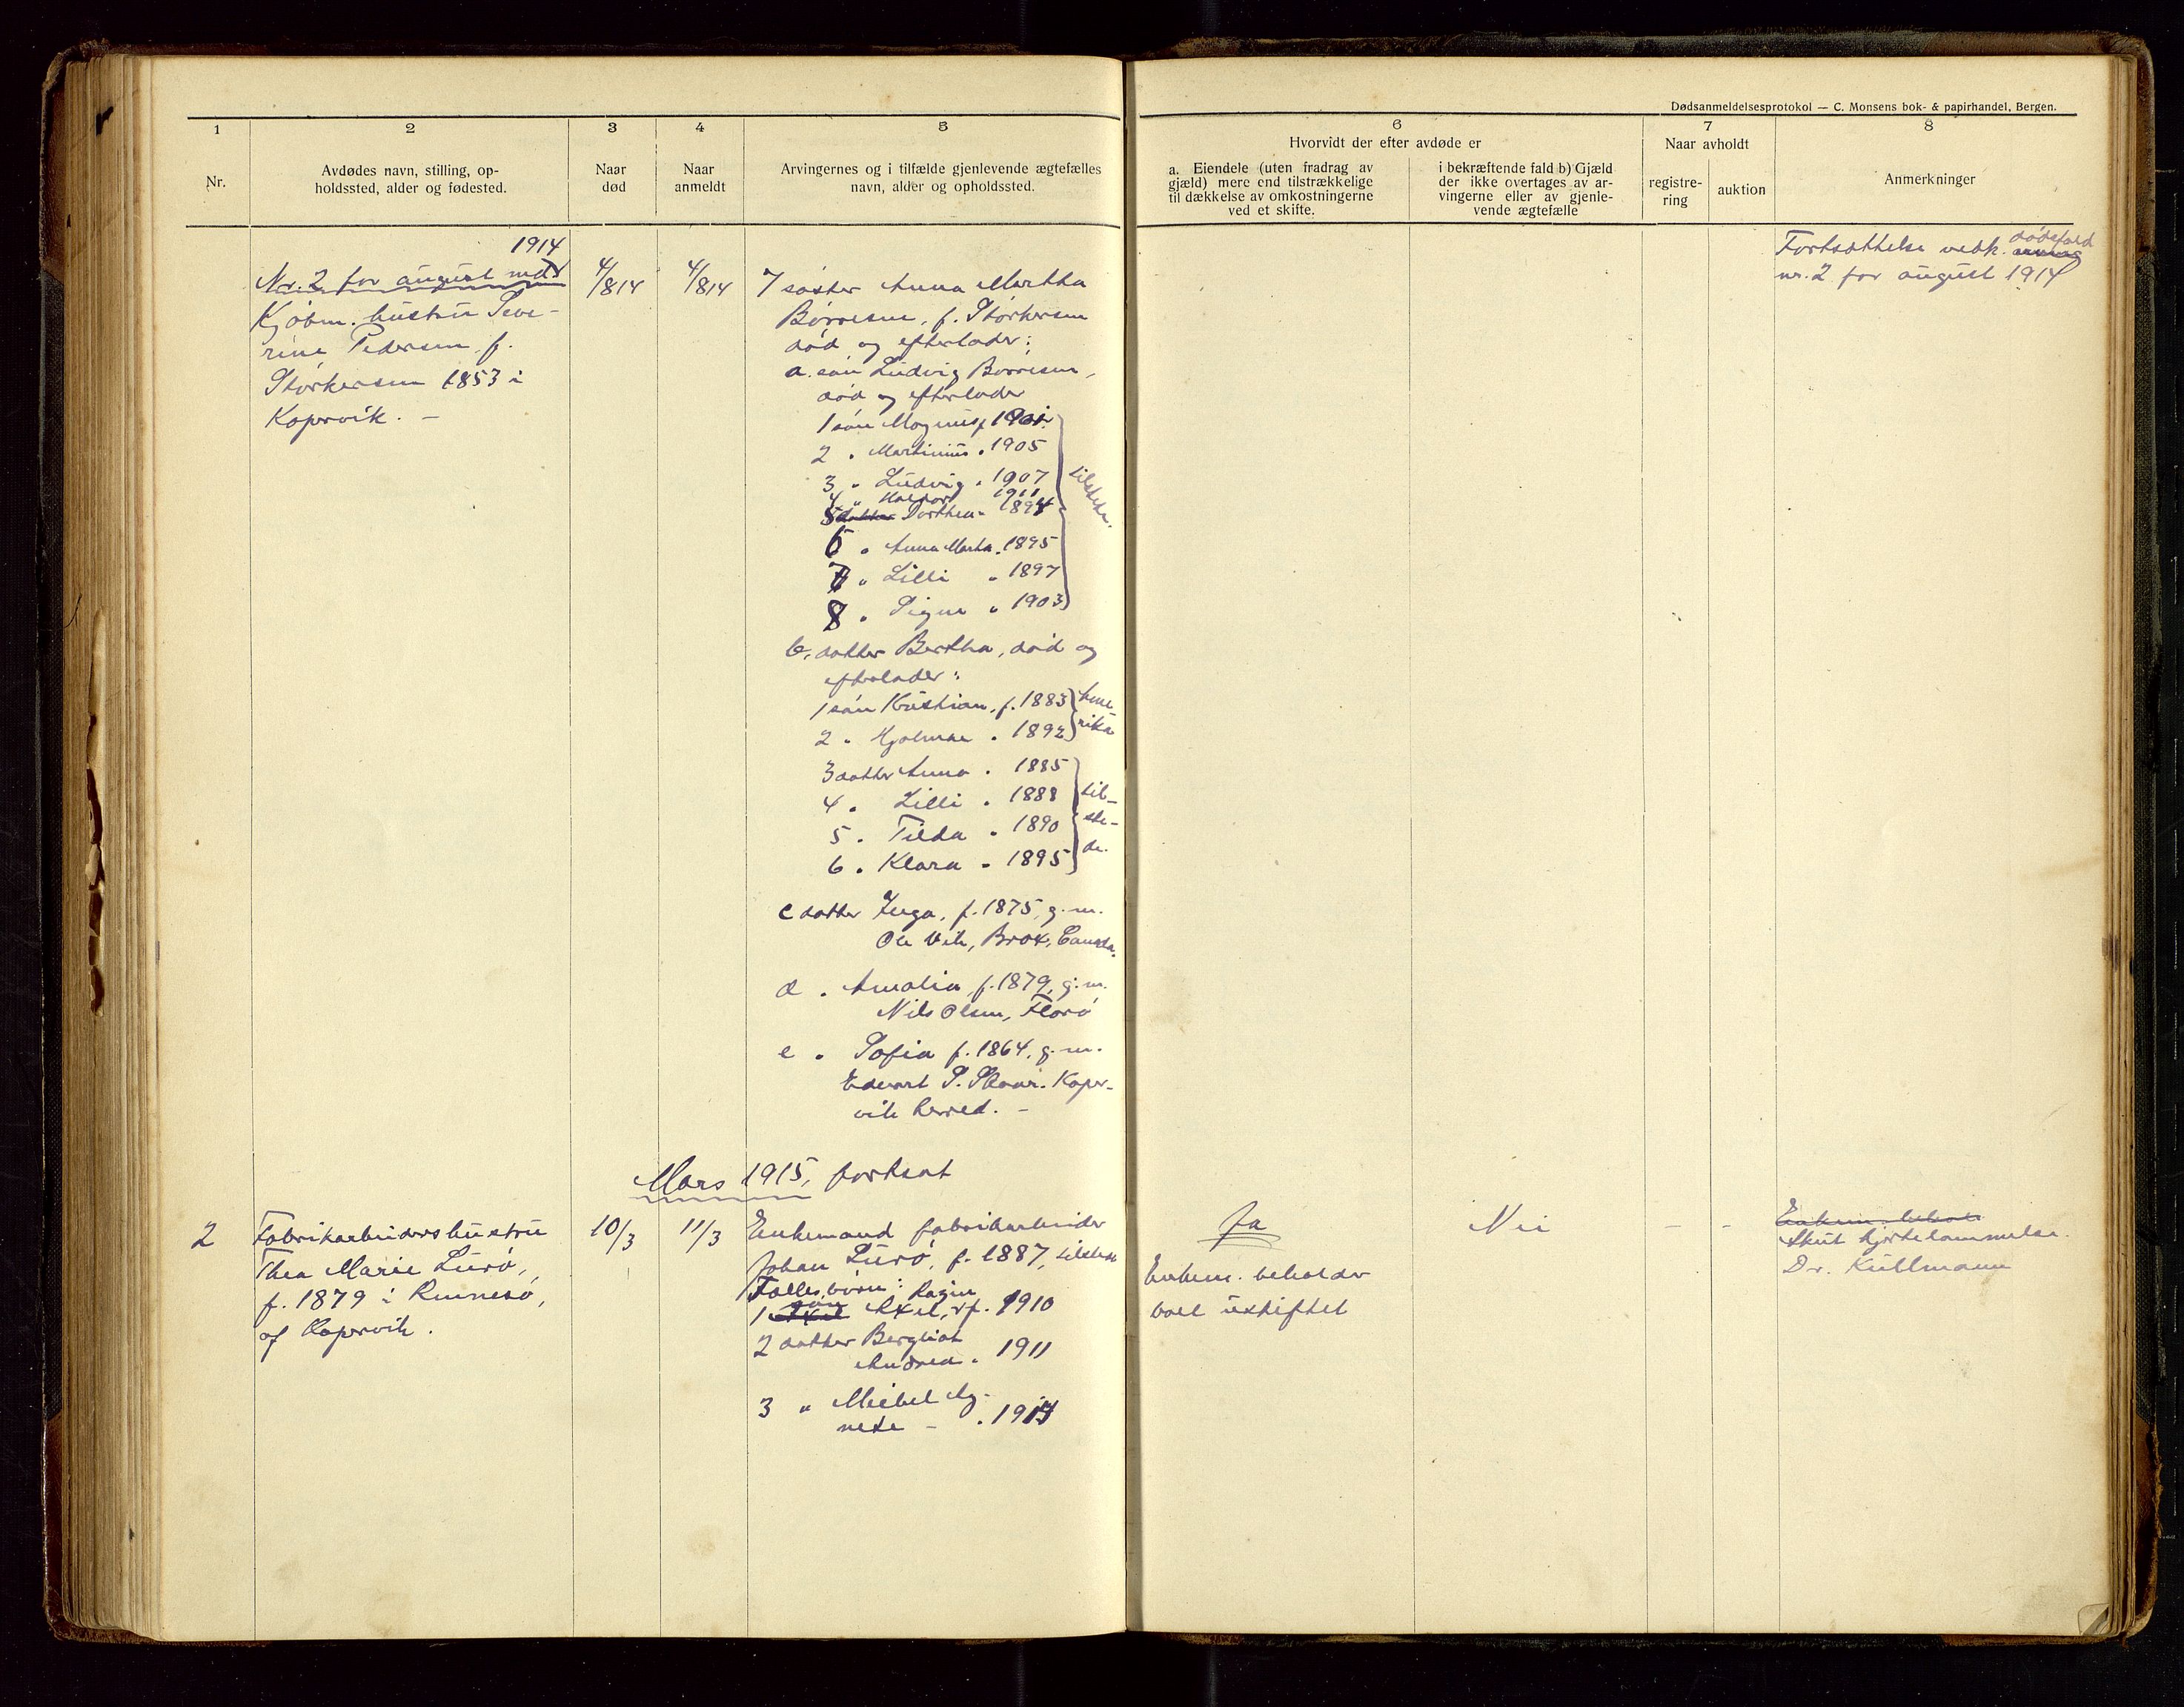 Dødsanmeldelsesprotokol — C. Monsens bok- & papirhandel, Bergen.
1
2
3
4
5
6
7
8
Nr.
Avdødes navn, stilling, op-
holdssted, alder og fødested.
Naar
død
Naar
anmeldt
Arvingernes og i tilfælde gjenlevende ægtefælles
navn, alder og opholdssted.
Hvorvidt der efter avdøde er
a. Eiendele (uten fradrag av
gjæld) mere end tilstrækkelige
til dækkelse av omkostningerne
ved et skifte.
i bekræftende fald b) Gjæld
der ikke overtages av ar-
vingerne eller av gjenle-
vende ægtefælle
Naar avholdt
registre-
ring
auktion
Anmerkninger
1914
Nr. 2 for august md
Kjøbm. hustru Seve-
rine Pedersen f.
Storkersen 1853 i
Kopervik. —
4/8 14
4/8 14
7 søster Anna Martha
Børresen, f. Storkersen
død og efterlader:
a. søn Ludvig Børresen,
død og efterlader
1 søn Magnus f. 1901
2 " Martinius " 1905
3 " Ludvig " 1907
4 " 1911
5 datter Dorthea " 1894
6 " Anna Martha " 1895
7 " Lilli " 1897
8 " Signe " 1903
tilstede.
b. datter Bertha, død og
efterlader:
1 søn Kristian, f. 1883
2 " Hjalmar " 1892
Ame-
rika
3 datter Anna " 1885
4 " Lilli " 1888
5 " Tilda " 1890
6 " Klara " 1895
til-
ste-
de.
c datter Inga, f. 1875, g. m.
Ole Vik, Canada.
d " Amalia, f. 1879, g. m.
Nils Olsen, Florø
e " Sofia f. 1864, g. m.
Edvart S. Skaar. Koper-
vik herred. —
Fortsættelse vedk. dødsfald
nr. 2 for august 1914
Mars 1915, fortsat
2
Fabrikarbeiders hustru
Thea Marie Lurø,
f. 1879 i Rennesø,
af Kopervik.
10/3
11/3
Enkemand fabrikarbeider
Johan Lurø, f. 1887, tilstede
Fælles børn: Ragin
1 søn Axel, f. 1910
2 datter Bergliot
Andrea " 1911
3 " Meibel Ag-
nete — " 1914
Ja
Enkem. beholder
boet uskiftet
Nei
—
-
Akut hjertelammelse.
Dr. Kullmann